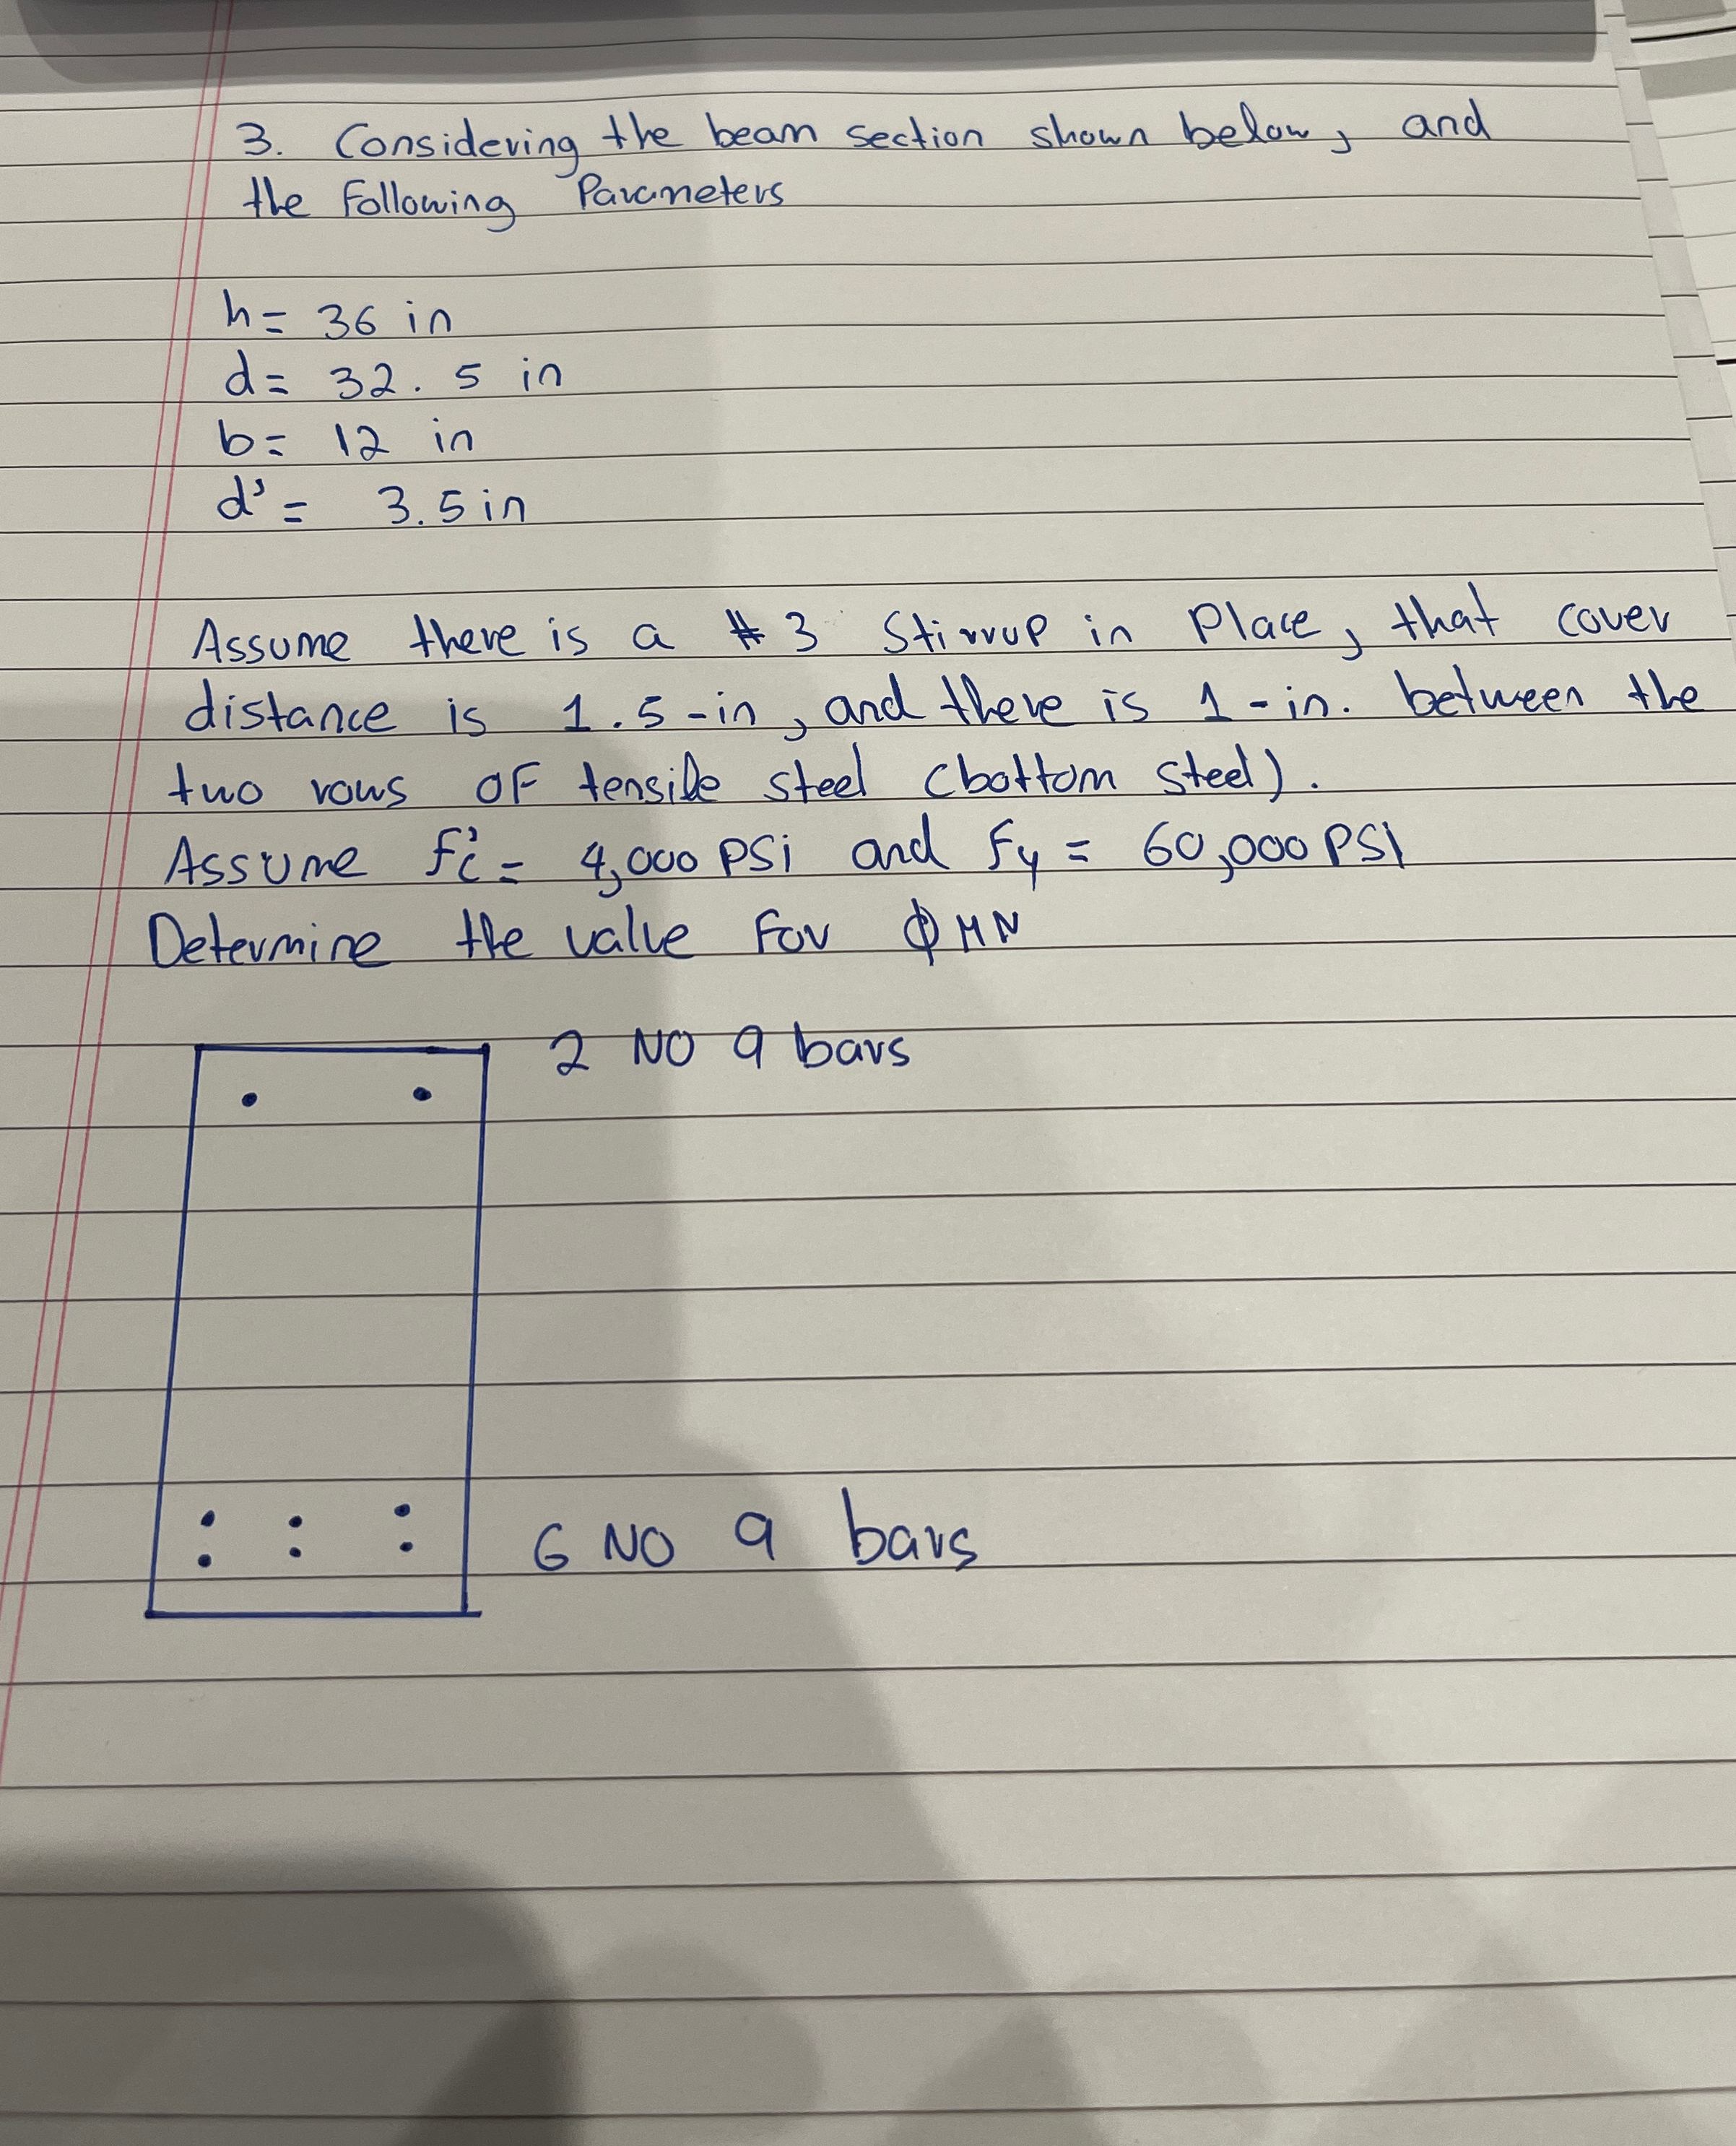 3. Considering the beam section shown below, and
the Following Parameters
h= 36 in
d= 32.5 in
b= 12 in
d'= 3.5 in
Assume there is a #3 Stirrup in Place, that cover
distance is 1.5-in, and there is 1-in. between the
two rows OF tensile steel (bottom steel).
Assume f'c= 4,000 PSi and Fy= 60,000 PSI
Determine the value For ΦMN
2 NO 9 bars
6 NO 9 bars